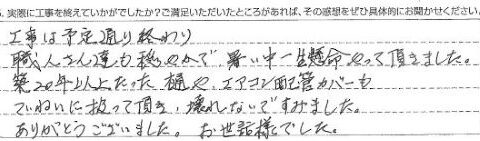 実際に工事を終えていかがでしたか？ご満足いただいたところがあれば、その感想をぜひ具体的にお聞かせください。
工事は予定通り終わり
職人さん達も穏やかで、暑い中一生懸命やって頂きました。
築20年以上たった樋や、エアコン配管カバーも
ていねいに扱って頂き、壊れないですみました。
ありがとうございました。お世話様でした。